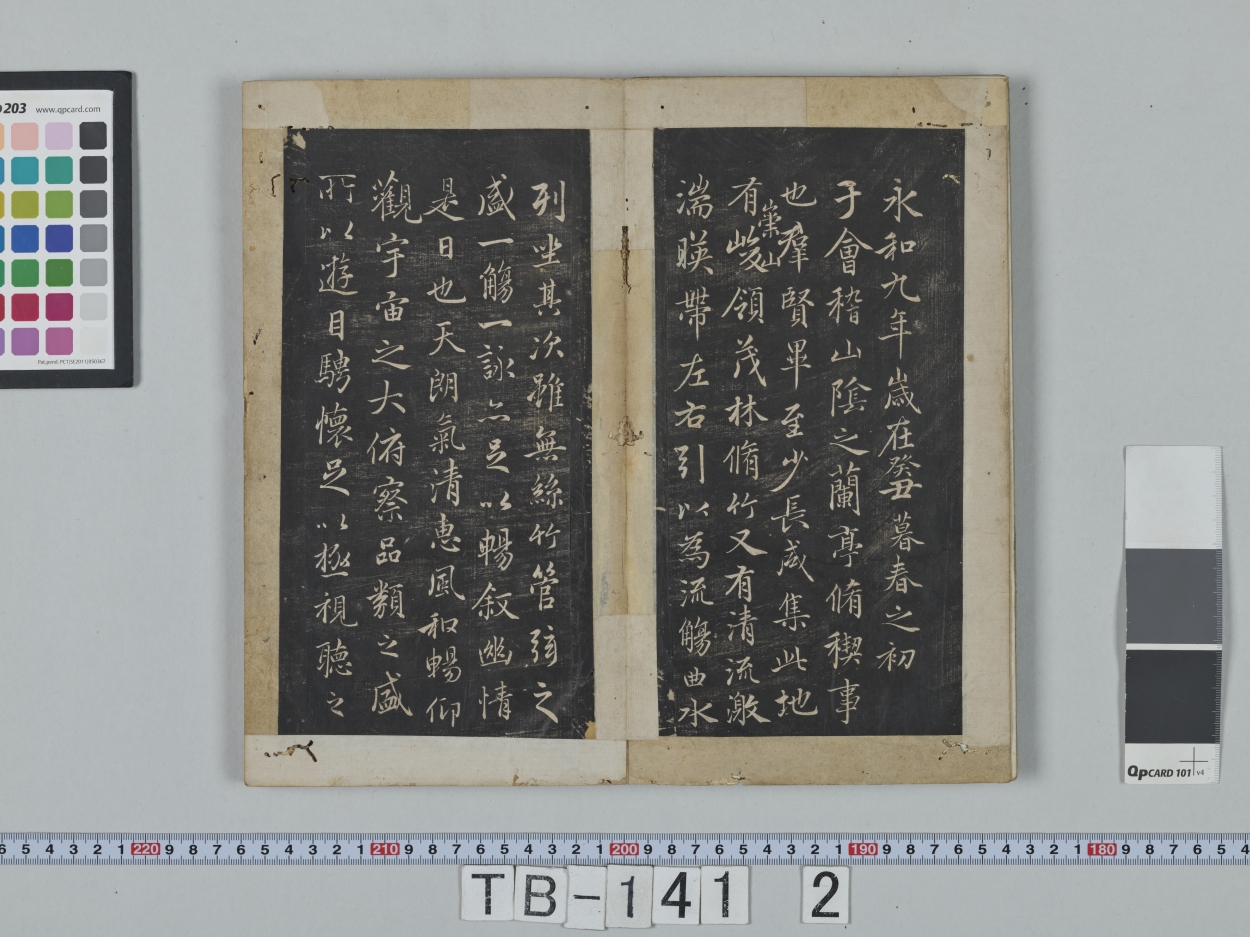 永和九年歲在癸丑暮春之初
于會稽山陰之蘭亭脩稧事
也羣賢畢至少長咸集此地
有崇山峻領茂林脩竹又有清流激
湍暎帶左右引以為流觴曲水
列坐其次雖無絲竹管弦之
盛一觴一詠亦足以暢叙幽情
是日也天朗氣清惠風和暢仰
觀宇宙之大俯察品類之盛
所以遊目騁懷足以極視聽之
203 www.qpcard.com
QPCARD 101 v4
6 5 4 3 2 1 220 9 8 7 6 5 4 3 2 1 210 9 8 7 6 5 4 3 2 1 200 9 8 7 6 5 4 3 2 1 190 9 8 7 6 5 4 3 2 1 180 9 8 7 6 5 4
TB-141 2